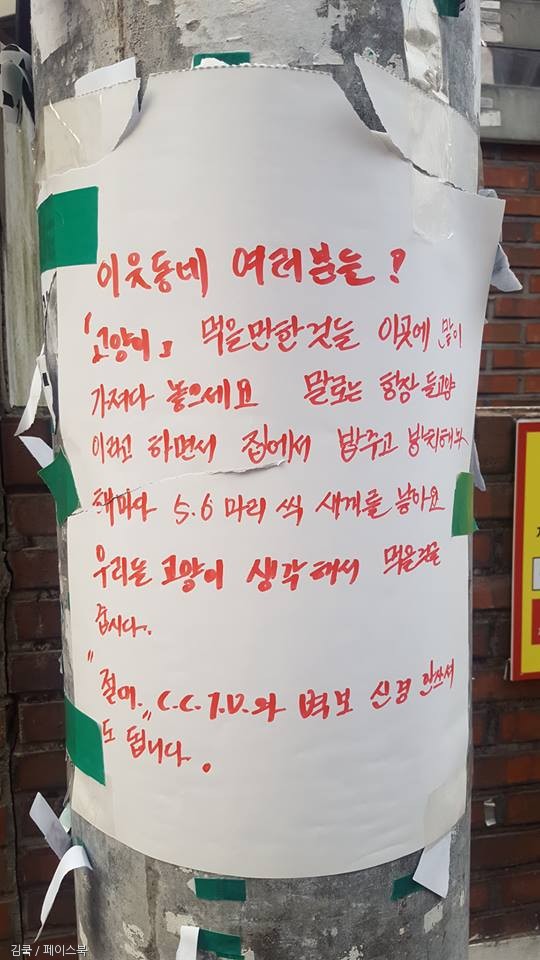 이웃동네 여러분들?
「고양이」 먹을만한것들 이곳에 많이
가져다 놓으세요 말로는 항상 들고양
이라고 하면서 집에서 밥주고 방치해놔
해마다 5.6 마리 씩 새끼를 낳아요
우리는 고양이 생각해서 먹을것을
줍시다.
"절대" C.C.T.V.와 벽보 신경 안쓰셔
도 됩니다.
김쿡 / 페이스북